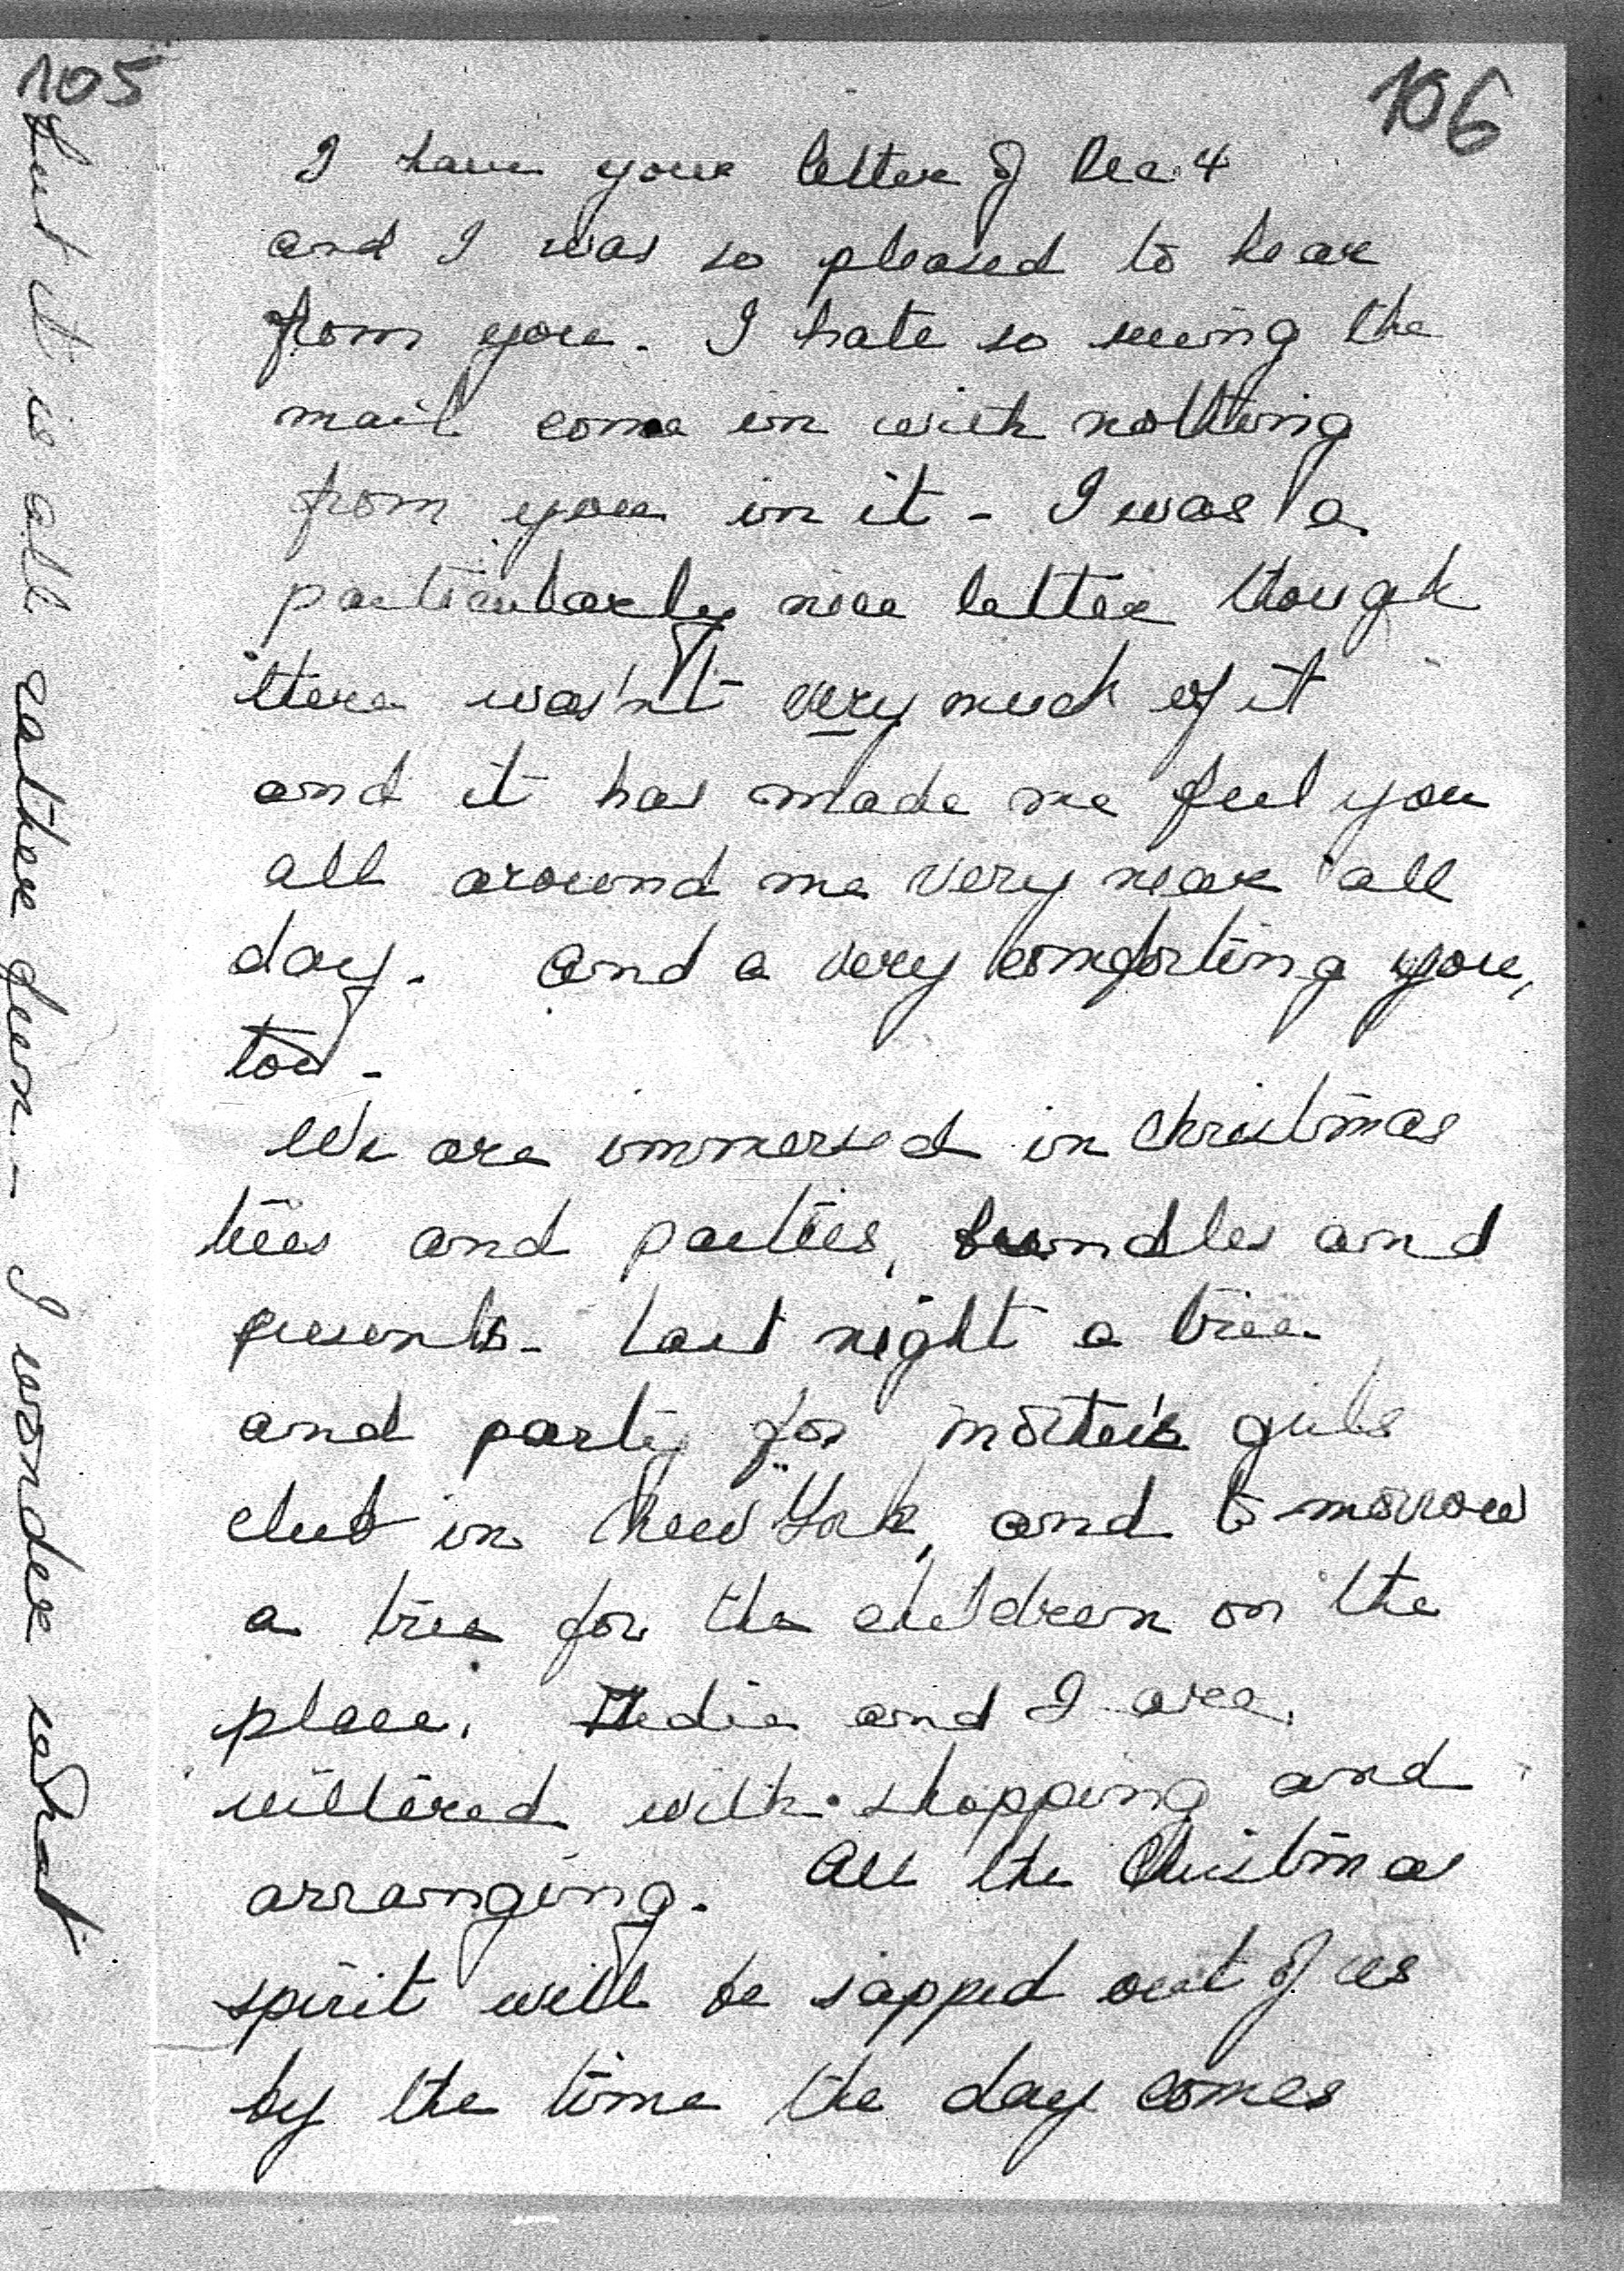 105
106
I have your letter of Dec. 4
and I was so pleased to hear
from you. I hate so seeing the
mail come in with nothing
from you in it - I was a
particularly nice letter though
there wasn't very much of it
and it has made me feel you
all around me very near all
day. And a very comforting you,
too -
We are immersed in Christmas
trees and parties, bundles and
presents - Last night a tree
and party for mother's girls
club in New York, and to-morrow
a tree for the children on the
place. and I are
with shopping and
arranging. All the Christmas
spirit will be sapped out of us
by the time the day comes
but it is all rather fun - I wonder what